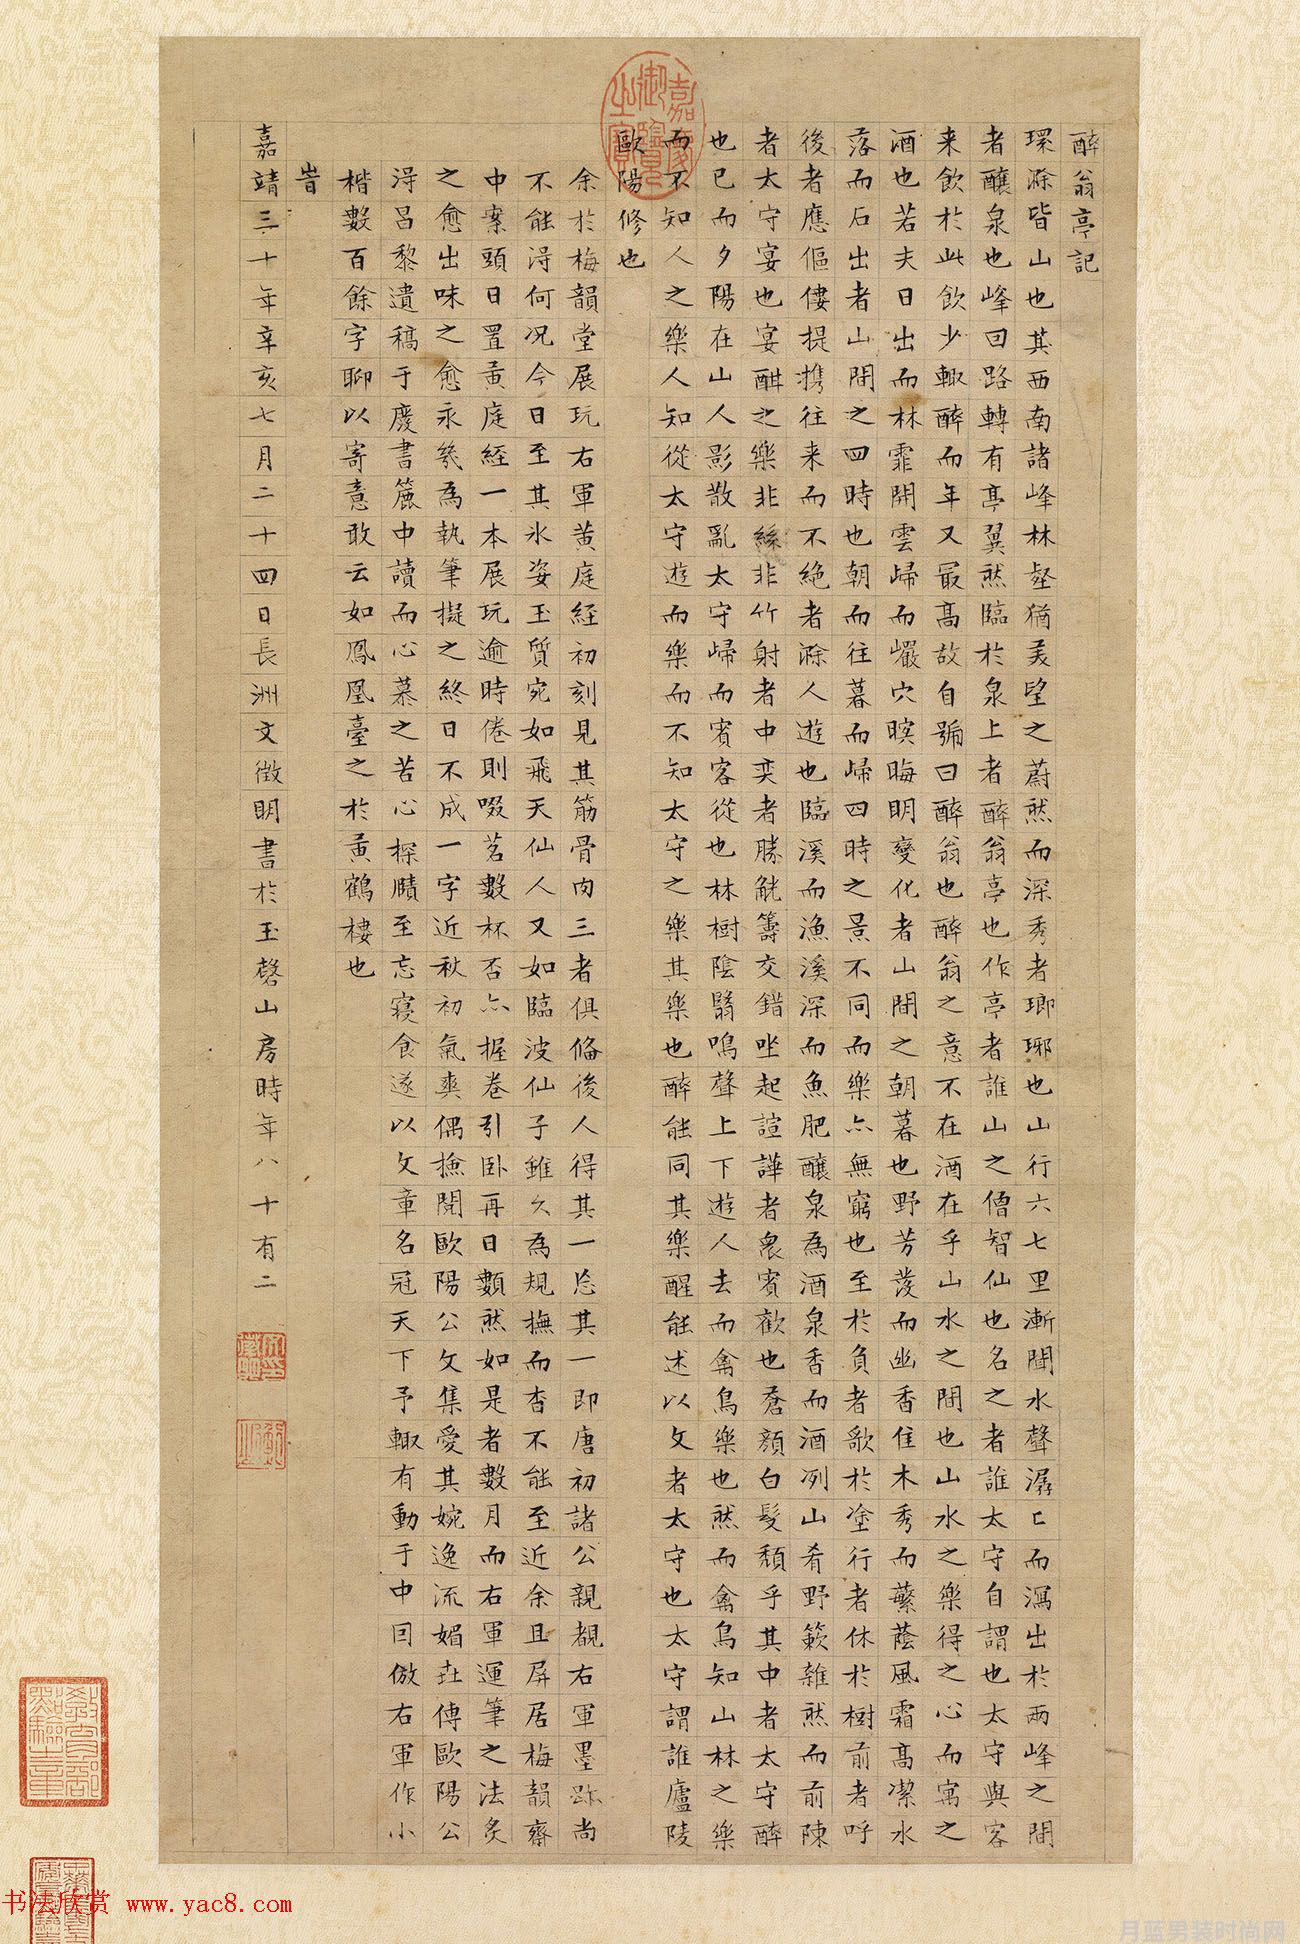 醉翁亭記
環滁皆山也其西南諸峰林壑猶美望之蔚然而深秀者瑯琊也山行六七里漸聞水聲潺匕而瀉出於兩峰之間
者釀泉也峰回路轉有亭翼然臨於泉上者醉翁亭也作亭者誰山之僧智仙也名之者誰太守自謂也太守與客
来飲於此飲少輒醉而年又最髙故自號曰醉翁也醉翁之意不在酒在乎山水之間也山水之樂得之心而寓之
酒也若夫日出而林霏開雲歸而巖穴暝晦明變化者山間之朝暮也野芳發而幽香佳木秀而蘩蔭風霜髙潔水
落而石出者山間之四時也朝而往暮而歸四時之景不同而樂亦無窮也至於負者歌於塗行者休於樹前者呼
後者應傴僂提攜往来而不絶者滁人遊也臨溪而漁溪深而魚肥釀泉為酒泉香而酒冽山肴野蔌雜然而前陳
者太守宴也宴酣之樂非絲非竹射者中奕者勝觥籌交錯坐起諠譁者衆賓歡也蒼顔白髮頹乎其中者太守醉
也已而夕陽在山人影散亂太守歸而賓客從也林樹陰翳鳴聲上下遊人去而禽鳥樂也然而禽鳥知山林之樂
而不知人之樂人知從太守遊而樂而不知太守之樂其樂也醉能同其樂醒能述以文者太守也太守謂誰廬陵
歐陽修也
余於梅韻堂展玩右軍黄庭經初刻見其筋骨肉三者俱備後人得其一忘其一即唐初諸公親覩右軍墨跡尚
不能淂何况今日至其氷姿玉質宛如飛天仙人又如臨波仙子雖久為規撫而杳不能至近余且屏居梅韻齋
中案頭日置黄庭經一本展玩逾時倦則啜茗數杯否亦握卷引卧再日數然如是者數月而右軍運筆之法炙
之愈出味之愈永幾為執筆擬之終日不成一字近秋初氣爽偶撿閲歐陽公文集愛其婉逸流媚茲傳歐陽公
淂昌黎遺稿于廢書簏中讀而心慕之苦心探賾至忘寝食遂以文章名冠天下予輒有動于中囙倣右軍作小
楷數百餘字聊以寄意敢云如鳳凰臺之於黄鶴樓也
旹
嘉靖三十年辛亥七月二十四日長洲文徵明書於玉磬山房時年八十有二
嘉慶御覽之寶
书法欣赏 www.yac8.com
月蓝男装时尚网